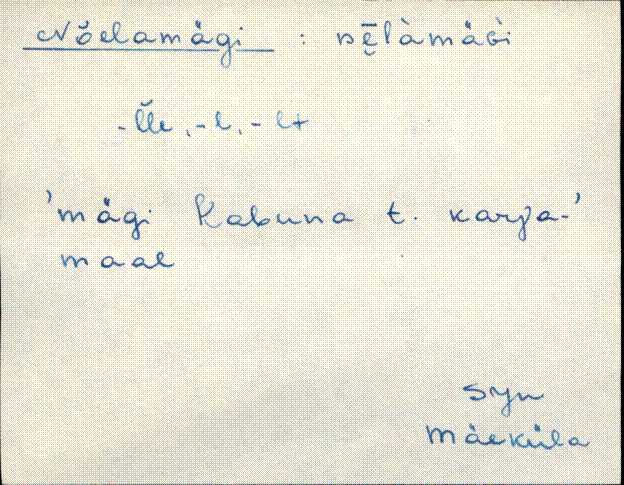 Nõelamägi : nẹ̄làmäɢì
-l̆le, -l, -lt
'mägi Kabuna t. karja-'
maal
Syn
Mäeküla